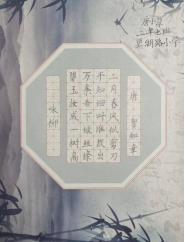 二年七班
咏柳
碧玉妆成一树高
万条垂下绿丝绦
不知细叶谁裁出
二月春风似剪刀
唐 贺知章